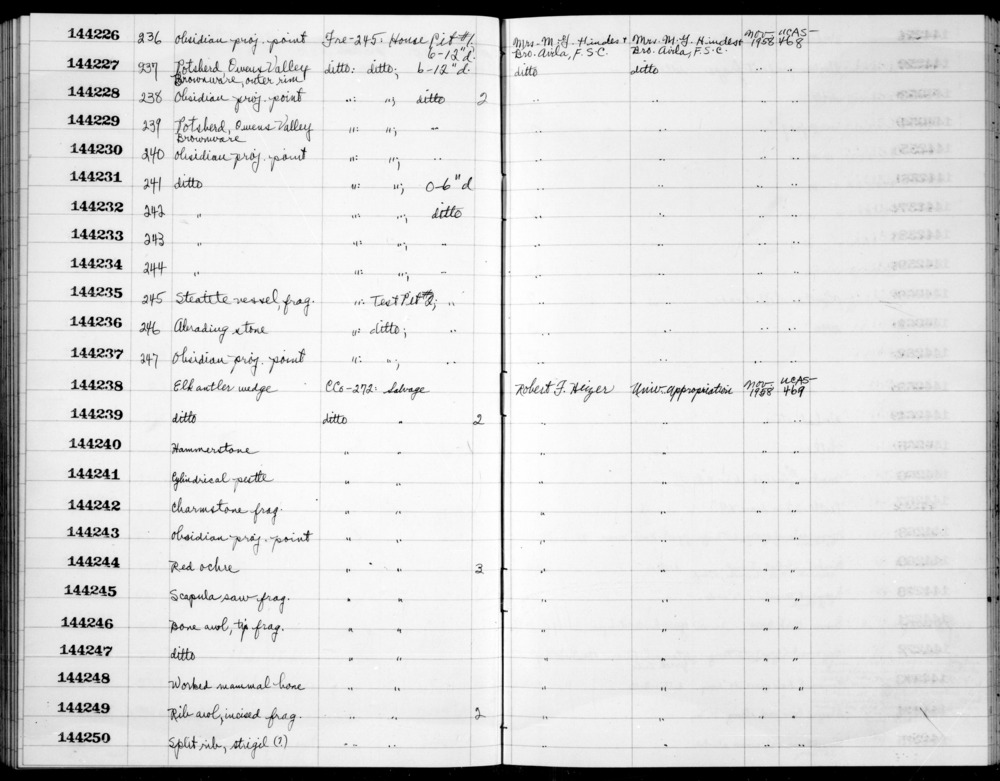 144226 236 Obsidian proj. point Fre-245: House Pit #1. 6-12"d. Mrs. M. G. Hindes + Bro. Avila, F.S.C. Mrs. M. G. Hindes + Bro. Avila, F.S.C. Nov 1958 UCAS-468
144227 237 Potsherd Owens Valley Brownware, outer rim ditto: ditto; 6-12"d. ditto ditto " "
144228 238 Obsidian proj. point ": "; ditto 2 " " " "
144229 239 Potsherd, Owens Valley Brownware ": "; " " " " "
144230 240 Obsidian proj. point ": "; " " " " "
144231 241 ditto ": "; 0-6"d " " " "
144232 242 " ": "; ditto " " " "
144233 243 " ": "; " " " " "
144234 244 " ": "; " " " " "
144235 245 Steatite vessel, frag. ": Test Pit #2; " " " " "
144236 246 Abrading stone ": ditto; " " " " "
144237 247 Obsidian proj. point ": "; " " " " "
144238 Elk antler wedge CCo-272: Salvage Robert F. Heizer Univ. appropriation Nov 1958 UCAS-469
144239 ditto ditto " 2 " " " "
144240 Hammerstone " " " " " "
144241 Cylindrical pestle " " " " " "
144242 Charmstone frag. " " " " " "
144243 Obsidian proj. point " " " " " "
144244 Red ochre " " 3 " " " "
144245 Scapula saw frag. " " " " " "
144246 Bone awl, tip frag. " " " " " "
144247 ditto " " " " " "
144248 Worked mammal bone " " " " " "
144249 Rib awl, incised frag. " " 2 " " " "
144250 Split rib, strigil (?) " " " " " "